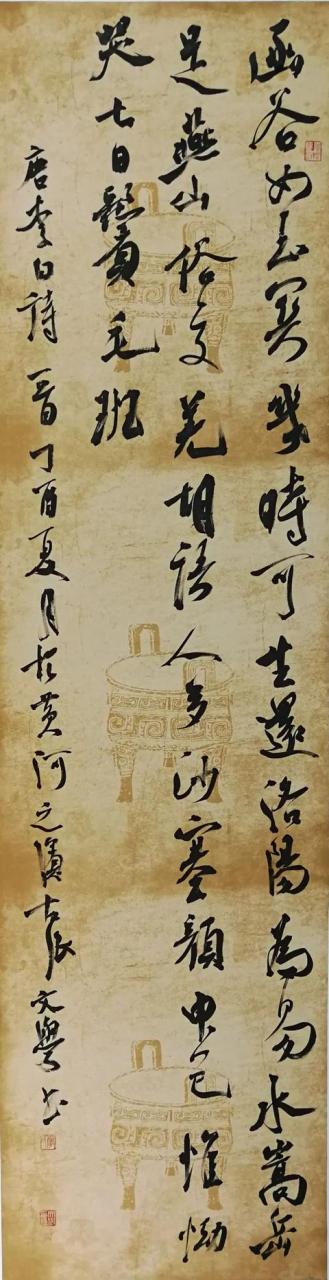 函谷如玉関幾時可生還洛陽為易水嵩岳
是燕山俗变羌胡語人多沙塞顏申包惟慟
哭七日鬢毛班
唐李白詩一首丁酉夏月於黄河之濱文舉书